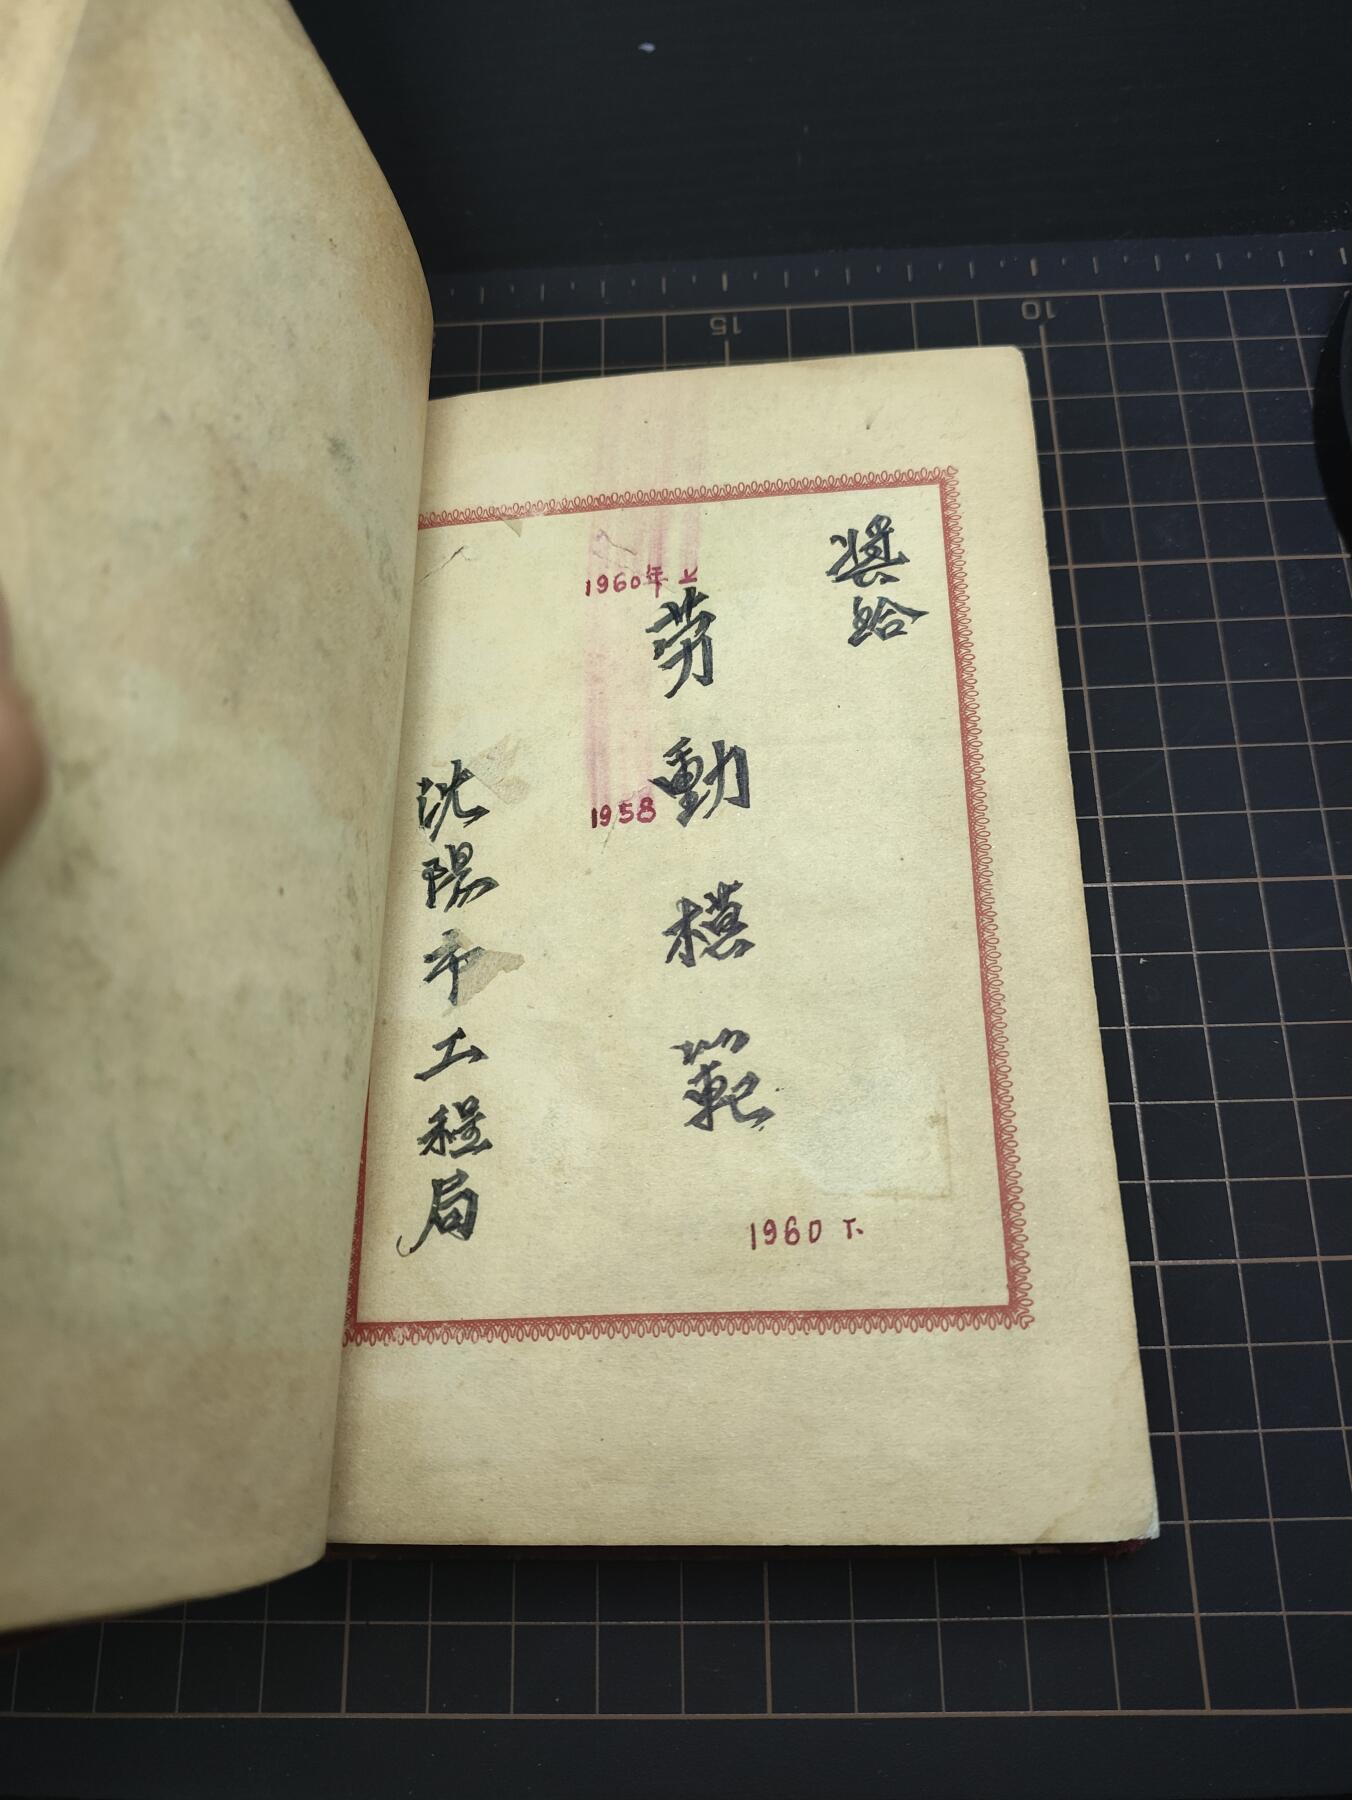 獎給
勞動模範
沈陽市工程局
1960年上
1958
1960下
15
10